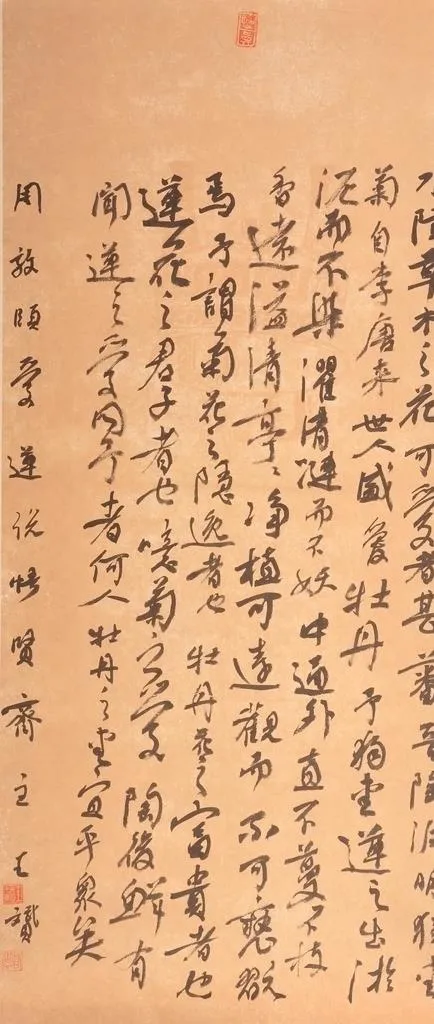 水陸草木之花可愛者甚蕃晉陶淵明獨愛
菊自李唐來世人盛愛牡丹予獨愛蓮之出淤
泥而不染濯清漣而不妖中通外直不蔓不枝
香遠溢清亭〻淨植可遠觀而不可褻翫
焉予謂菊花之隱逸者也牡丹花之富貴者也
蓮花之君子者也噫菊之愛陶後鮮有
聞蓮之愛同予者何人牡丹之愛宜乎眾矣
周敦頤愛蓮説悟賢齋主